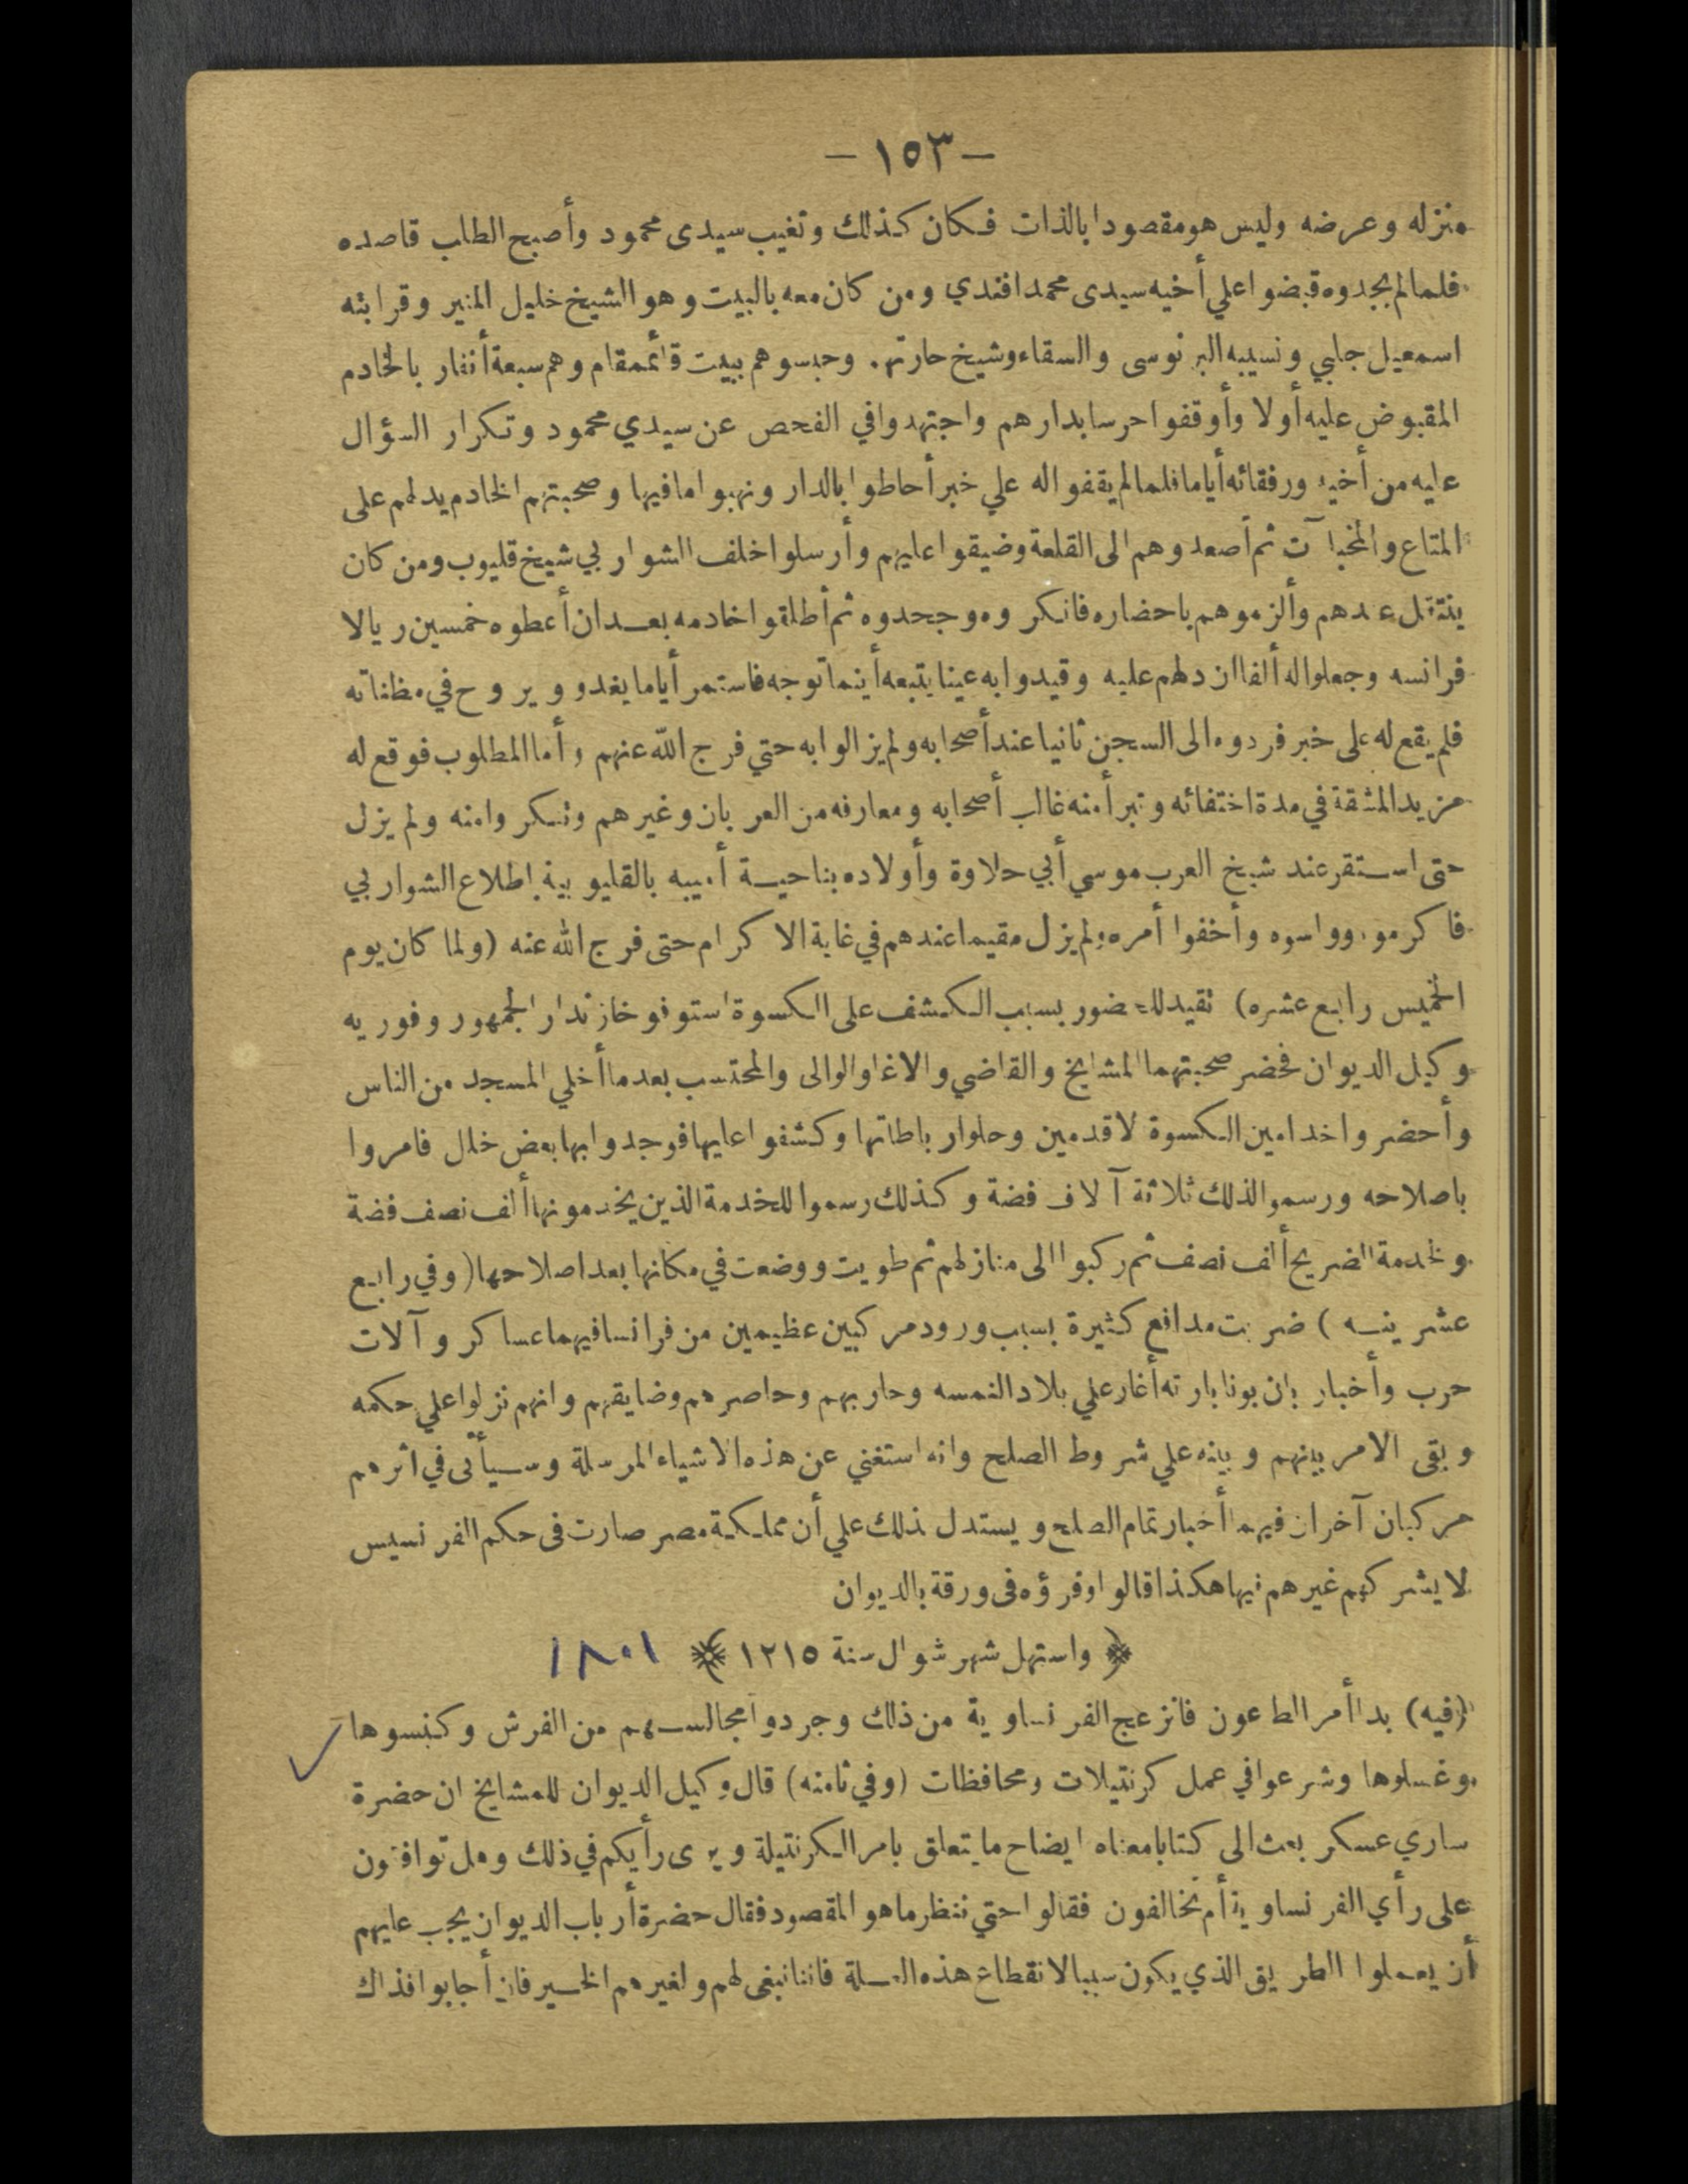 — ١٥٣ —
منزله وعرضه وليس هو مقصودا بالذات فكان كذلك وتغيب سيدى محمود وأصبح الطاب قاصده
فلما لم يجدوه قبضوا علي أخيه سيدى محمد افندي ومن كان معه بالبيت وهو الشيخ خليل المنير وقرابته
اسمعيل جلبي ونسيبه البرنوسى والسقاء وشيخ حارته. وحبسوهم ببيت قائممقام وهم سبعة أنفار بالخادم
المقبوض عليه أولا وأوقفوا حرسا بدارهم واجتهدوا في الفحص عن سيدي محمود وتكرار السؤال
عليه من أخيه ورفقائه أياما فلما لم يقفوا له علي خبر أحاطوا بالدار ونهبوا ما فيها وصحبتهم الخادم يدلهم على
المتاع والمخبآت ثم أصعدوهم الى القلعة وضيقوا عليهم وأرسلوا خلف الشواربي شيخ قليوب ومن كان
ينتقل عندهم وألزموهم باحضاره فانكروه وجحدوه ثم أطلقوا خادمه بعد ان أعطوه خمسين ريالا
فرانسه وجعلوا له ألفا ان دلهم عليه وقيدوا به عينا يتبعه أينما توجه فاستمر أياما يغدو ويروح في مظناته
فلم يقع له على خبر فردوه الى السجن ثانيا عند أصحابه ولم يزالوا به حتي فرج الله عنهم وأما المطلوب فوقع له
مزيد المشقة في مدة اختفائه وتبرأ منه غالب أصحابه ومعارفه من العربان وغيرهم وتنكروا منه ولم يزل
حتى استقر عند شيخ العرب موسي أبي حلاوة وأولاده بناحية أميبه بالقليوبية باطلاع الشواربي
فاكرموه وواسوه وأخفوا أمره ولم يزل مقيما عندهم في غاية الاكرام حتى فرج الله عنه (ولما كان يوم
الخميس رابع عشره) تقيد للحضور بسبب الكشف على الكسوة استوفو خازندار الجمهور وفوريه
وكيل الديوان فحضر صحبتهما المشايخ والقاضي والاغا والوالى والمحتسب بعد ما أخلي المسجد من الناس
وأحضروا خدامين الكسوة لاقدمين وحلوا رباطاتها وكشفوا عليها فوجدوا بها بعض خلل فامروا
باصلاحه ورسموا لذلك ثلاثة آلاف فضة وكذلك رسموا للخدمة الذين يخدمونها ألف نصف فضة
ولخدمة الضريح ألف نصف ثم ركبوا الى منازلهم ثم طويت ووضعت في مكانها بعد اصلاحها (وفي رابع
عشرينه) ضربت مدافع كثيرة بسبب ورود مركبين عظيمين من فرانسا فيهما عساكر وآلات
حرب وأخبار بان بونابارته أغار علي بلاد النمسه وحاربهم وحاصرهم وضايقهم وانهم نزلوا علي حكمه
وبقى الامر بينهم وبينه علي شروط الصلح وانه استغني عن هذه الاشياء المرسلة وسيأتى في اثرهم
مركبان آخران فيهما أخبار تمام الصلح ويستدل بذلك علي أن مملكة مصر صارت فى حكم الفرنسيس
لا يشركهم غيرهم فيها هكذا قالوا وقرؤه فى ورقة بالديوان
﴿ واستهل شهر شوال سنة ١٢١٥ ﴾ ١٨٠١
(فيه) بدا أمر الطاعون فانزعج الفرنساوية من ذلك وجردوا مجالسهم من الفرش وكنسوها
وغسلوها وشرعوا في عمل كرنتيلات ومحافظات (وفي ثامنه) قال وكيل الديوان للمشايخ ان حضرة
ساري عسكر بعث الى كتابا معناه ايضاح ما يتعلق بامر الكرنتيلة ويرى رأيكم في ذلك وهل توافقون
على رأي الفرنساوية أم تخالفون فقالوا حتي ننظر ما هو المقصود فقال حضرة أرباب الديوان يجب عليهم
أن يعملوا الطريق الذي يكون سببا لانقطاع هذه العلة فاننا نبغى لهم ولغيرهم الخير فان أجابوا فذاك